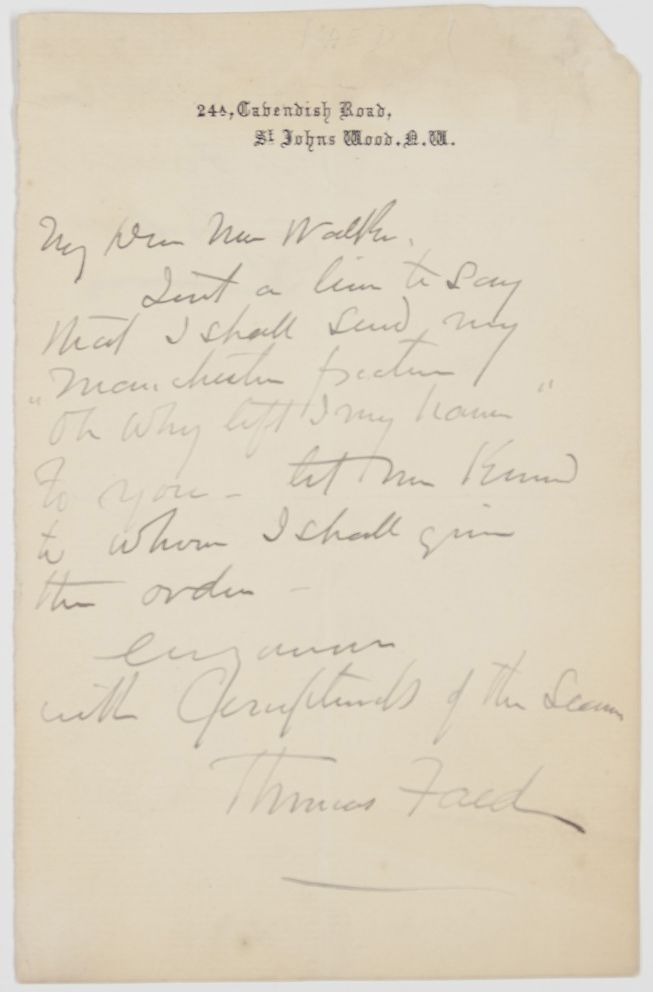 24A, Cavendish Road,
St Johns Wood. N.W.
My Dear Mr Walker.
Just a line to say
that I shall send my
"Manchester picture
Oh why left I my hame"
to you - let me know
to whom I shall give
the order -
Ever yours
with Compliments of the Season
Thomas Faed